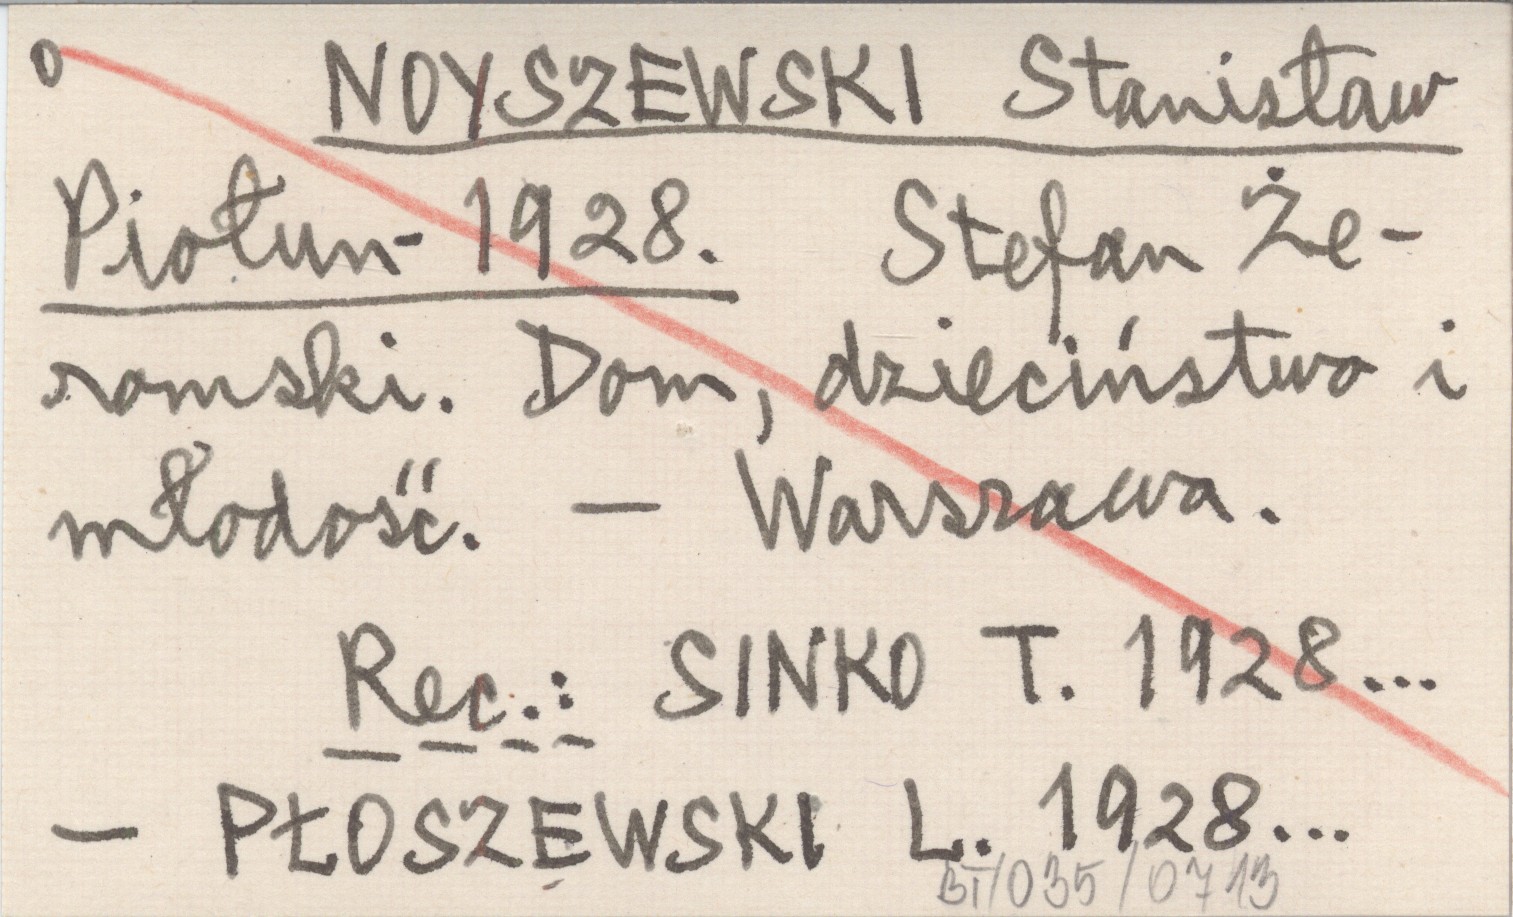 o NOYSZEWSKI Stanisław
Piołun- 1928. Stefan Że-
romski. Dom, dzieciństwo i
młodość. — Warszawa.
Rec.: SINKO T. 1928...
— PŁOSZEWSKI L. 1928...
BT/035/0713